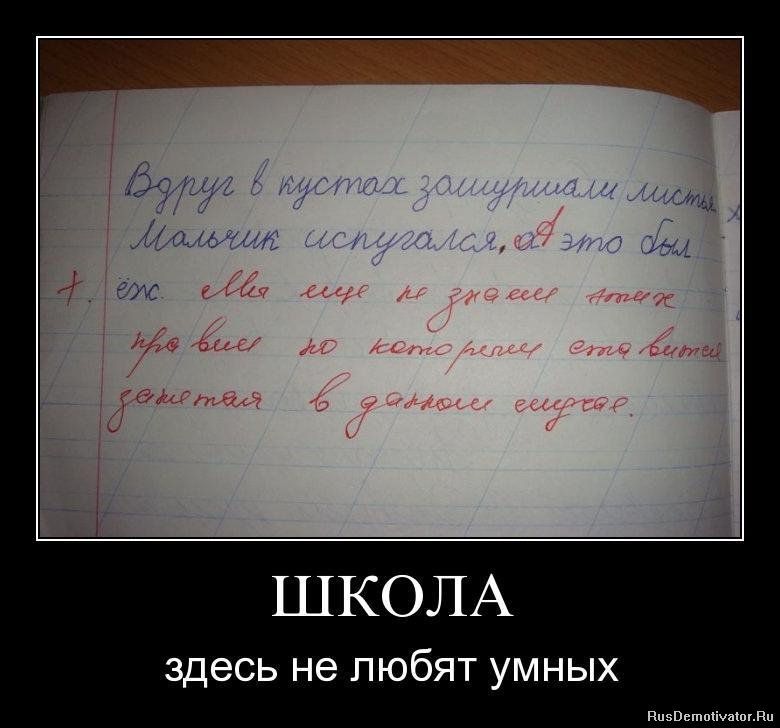 Вдруг в кустах зашуршали листья
Мальчик испугался, а А это был
+. ёж. Мы еще не знаем таких
правил по которым ставится
запятая в данном случае.
ШКОЛА
здесь не любят умных
RusDemotivator.Ru